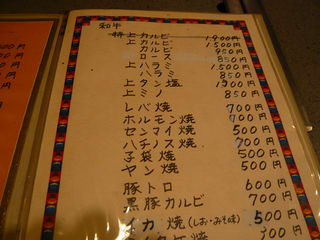 和牛
特上カルビ 1,900円
上カルビ 1,500円
カルビ 950円
ロース 850円
上ハラミ 1,500円
ハラミ 850円
上タン塩 1,200円
上ミノ 850円
レバ焼 700円
ホルモン焼 700円
センマイ焼 500円
ハチノス焼 700円
子袋焼 500円
ヤン焼 500円
豚トロ 600円
黒豚カルビ 700円
イカ焼(しお・みそ味) 500円